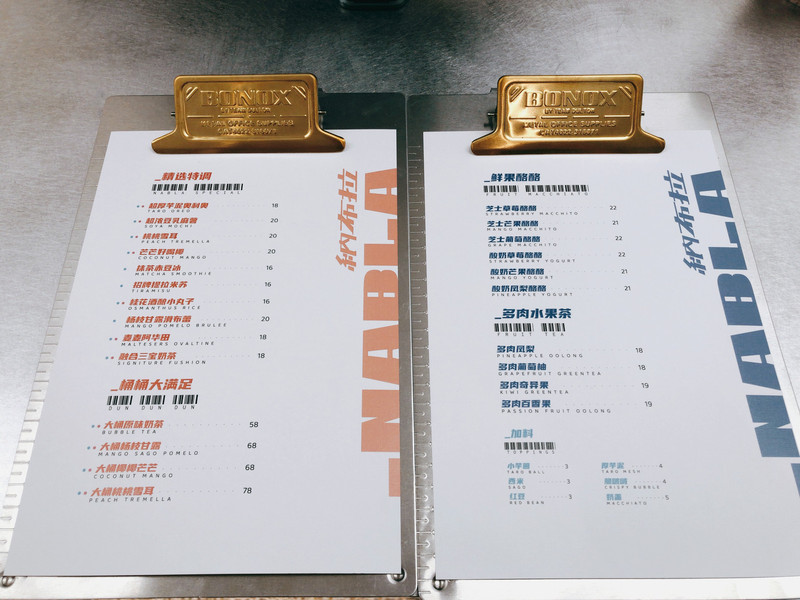 BONOX
BY TEAM DULTON
METAL OFFICE SUPPLIES
_精选特调
NABLA SPECIAL
超厚芋泥奥利奥 18
TARO OREO
超浓豆乳麻薯 20
SOYA MOCHI
桃桃雪耳 20
PEACH TREMELLA
芒芒好椰椰 20
COCONUT MANGO
抹茶赤豆冰 16
MATCHA SMOOTHIE
招牌提拉米苏 16
TIRAMISU
桂花酒酿小丸子 16
OSMANTHUS RICE
杨枝甘露滑布蕾 20
MANGO POMELO BRULEE
麦麦阿华田 18
MALTESERS OVALTINE
融合三宝奶茶 18
SIGNITURE FUSHION
_桶桶大满足
DUN DUN DUN
大桶原味奶茶 58
BUBBLE TEA
大桶杨枝甘露 68
MANGO SAGO POMELO
大桶椰椰芒芒 68
COCONUT MANGO
大桶桃桃雪耳 78
PEACH TREMELLA
納布拉
_NABLA
BONOX
BY TEAM DULTON
METAL OFFICE SUPPLIES
_鲜果酪酪
FRUIT MACCHIATO
芝士草莓酪酪 22
STRAWBERRY MACCHITO
芝士芒果酪酪 21
MANGO MACCHITO
芝士葡萄酪酪 22
GRAPE MACCHITO
酸奶草莓酪酪 22
STRAWBERRY YOGURT
酸奶芒果酪酪 21
MANGO YOGURT
酸奶凤梨酪酪 21
PINEAPPLE YOGURT
_多肉水果茶
FRUIT TEA
多肉凤梨 18
PINEAPPLE OOLONG
多肉葡萄柚 18
GRAPEFRUIT GREENTEA
多肉奇异果 19
KIWI GREENTEA
多肉百香果 19
PASSION FRUIT OOLONG
_加料
TOPPINGS
小芋圆 3
TARO BALL
西米 3
SAGO
红豆 3
RED BEAN
厚芋泥 4
TARO MESH
脆啵啵 4
CRISPY BUBBLE
奶盖 5
MACCHIATO
納布拉
_NABLA